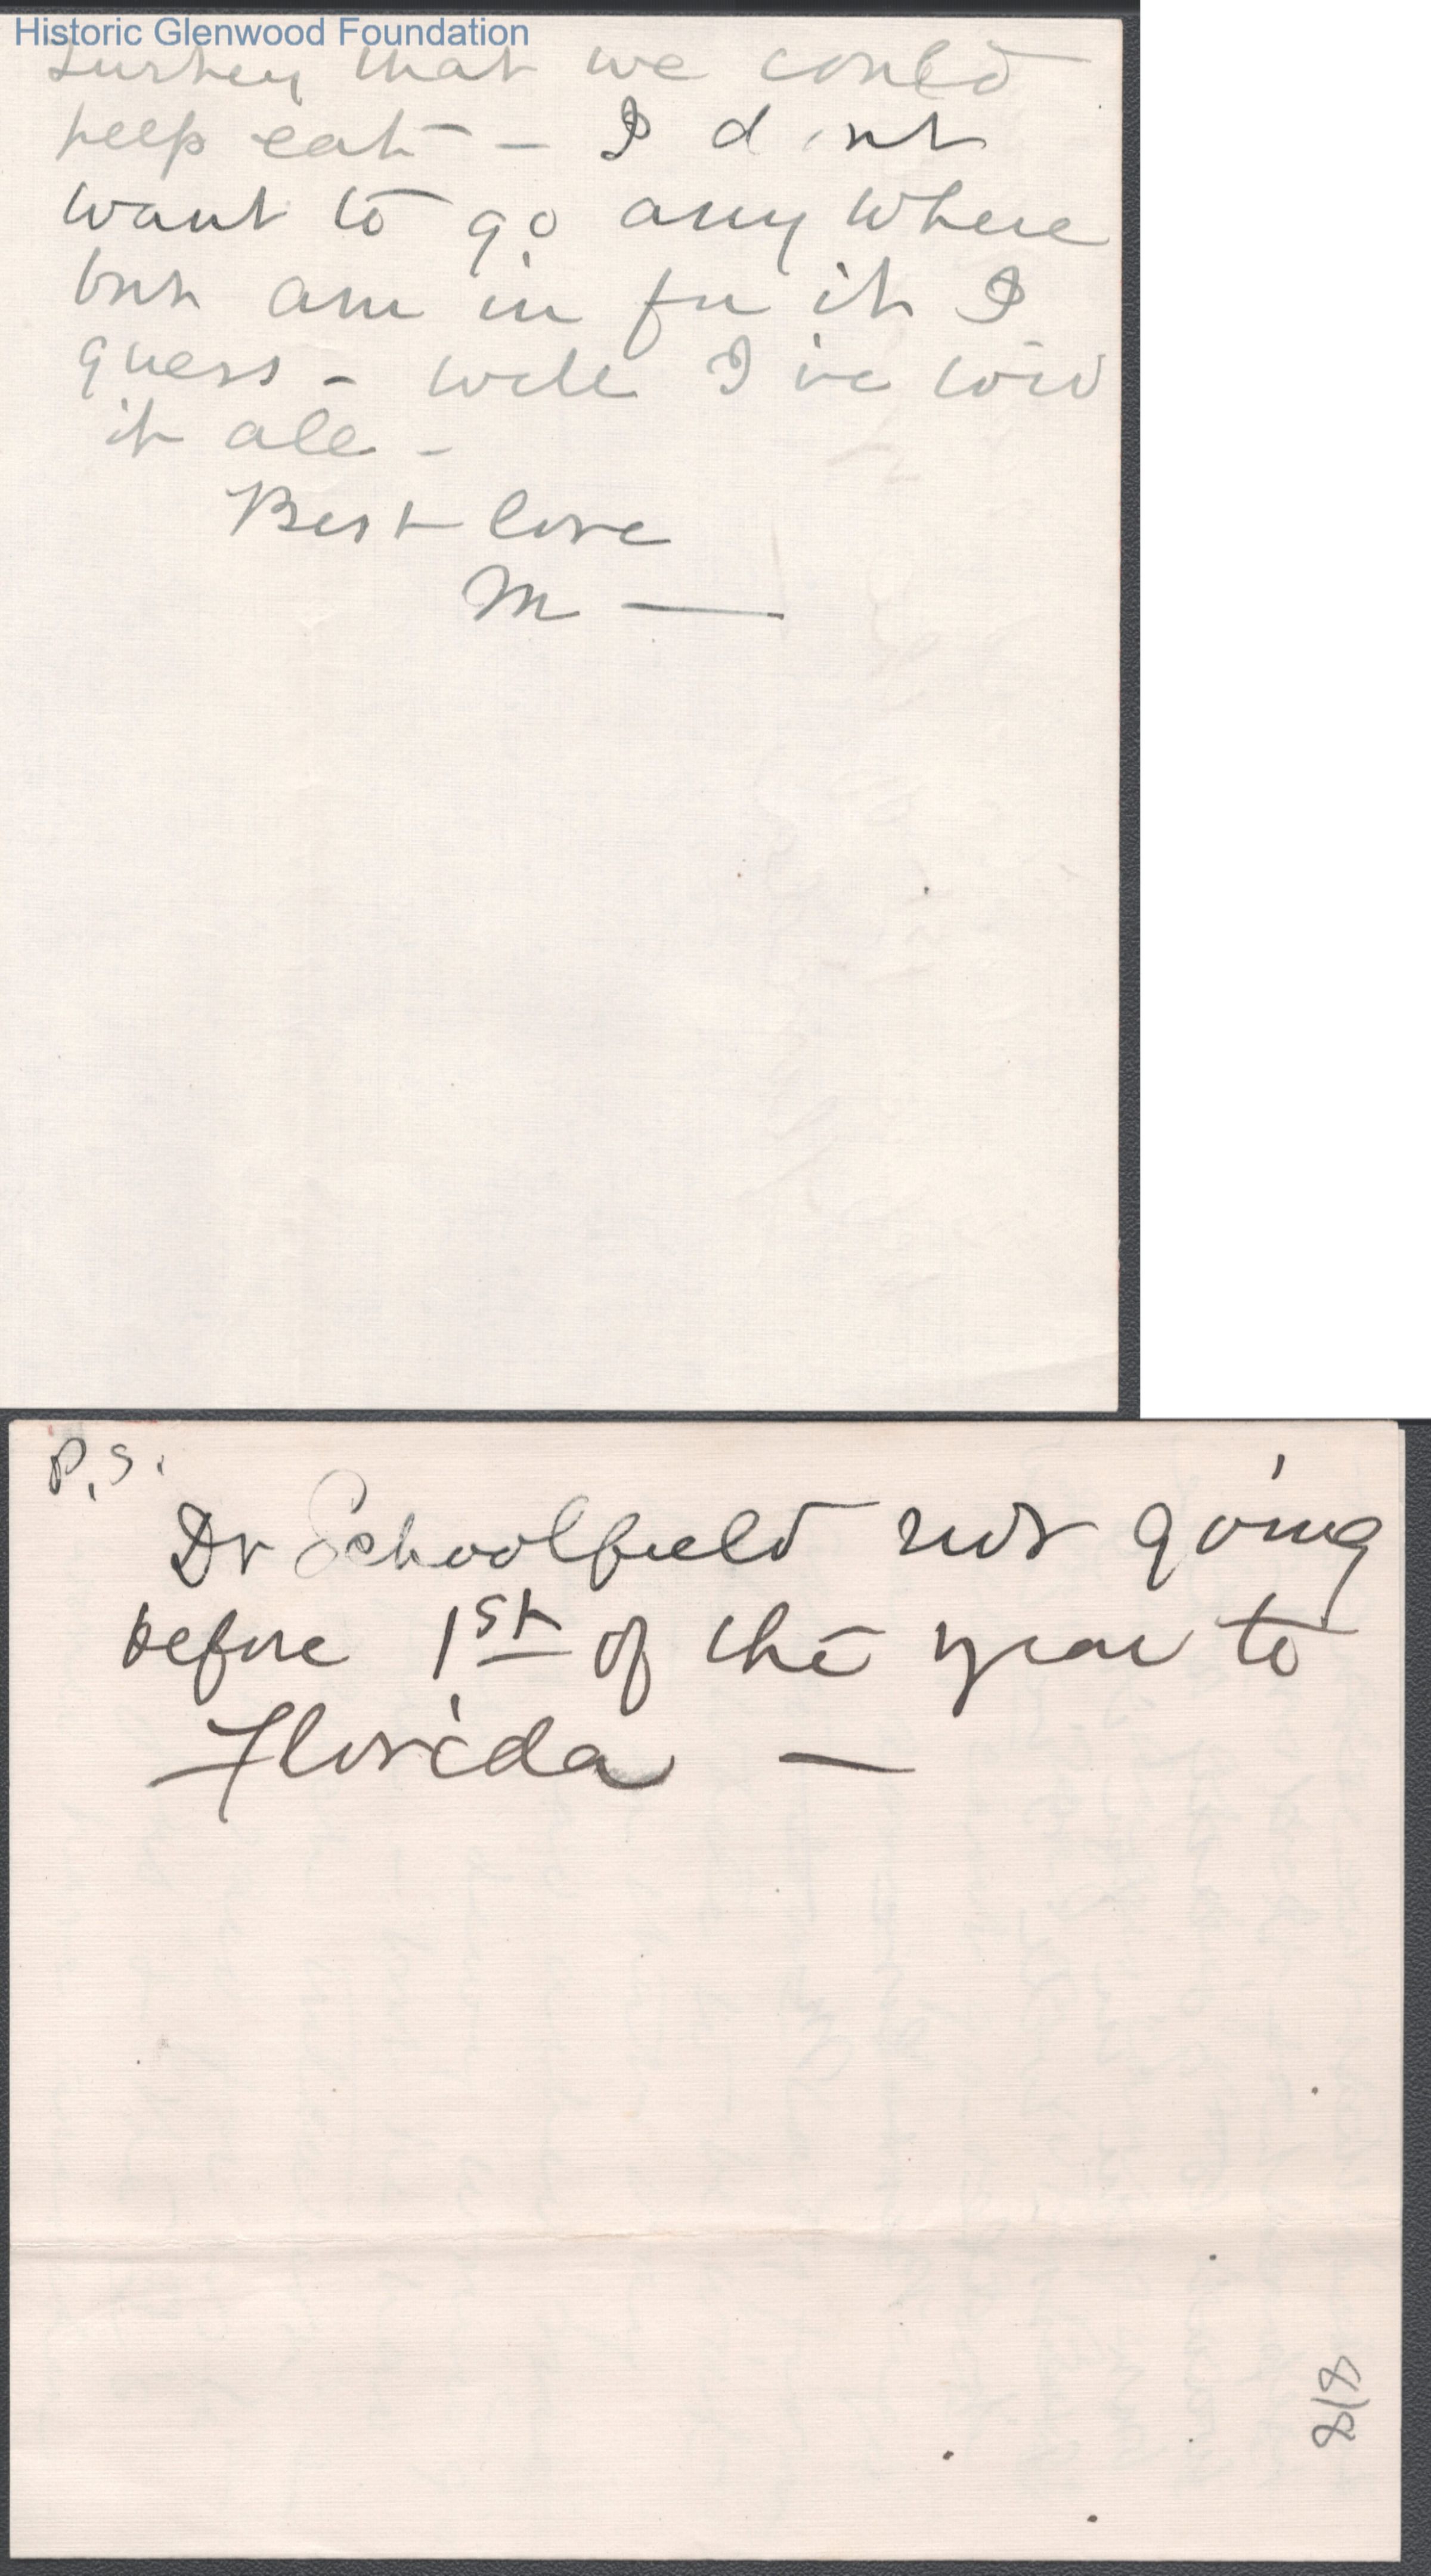 Historic Glenwood Foundation
turkey that we could
help eat – I dont
want to go any where
but am in for it I
guess – well I've told
it all –
Best love
M —
P.S.
Dr Schoolfield not going
before 1st of the year to
Florida —
8/8